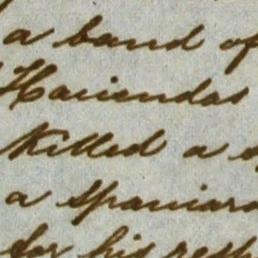 a band of
Haciendas
killed a
a Spaniard
for his